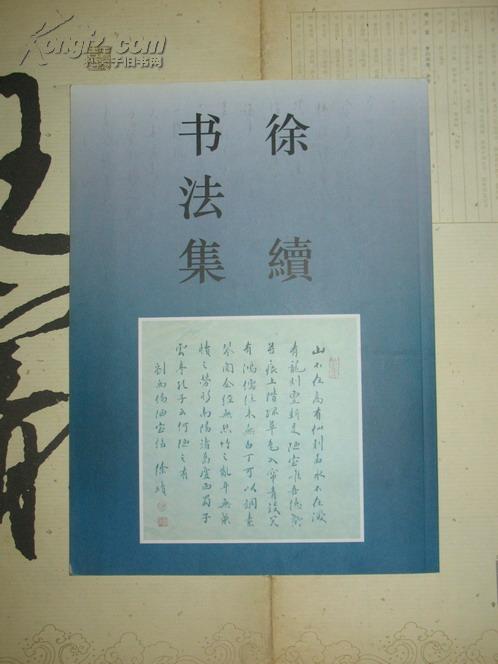 Kongfz.com
孔夫子旧书网
徐續
书法集
山不在高有仙則名水不在深
有龍則靈斯是陋室惟吾德馨
苔痕上階綠草色入簾青談笑
有鴻儒往來無白丁可以調素
琴閱金經無絲竹之亂耳無案
牘之勞形南陽諸葛廬西蜀子
雲亭孔子云何陋之有
劉禹錫陋室銘 徐續